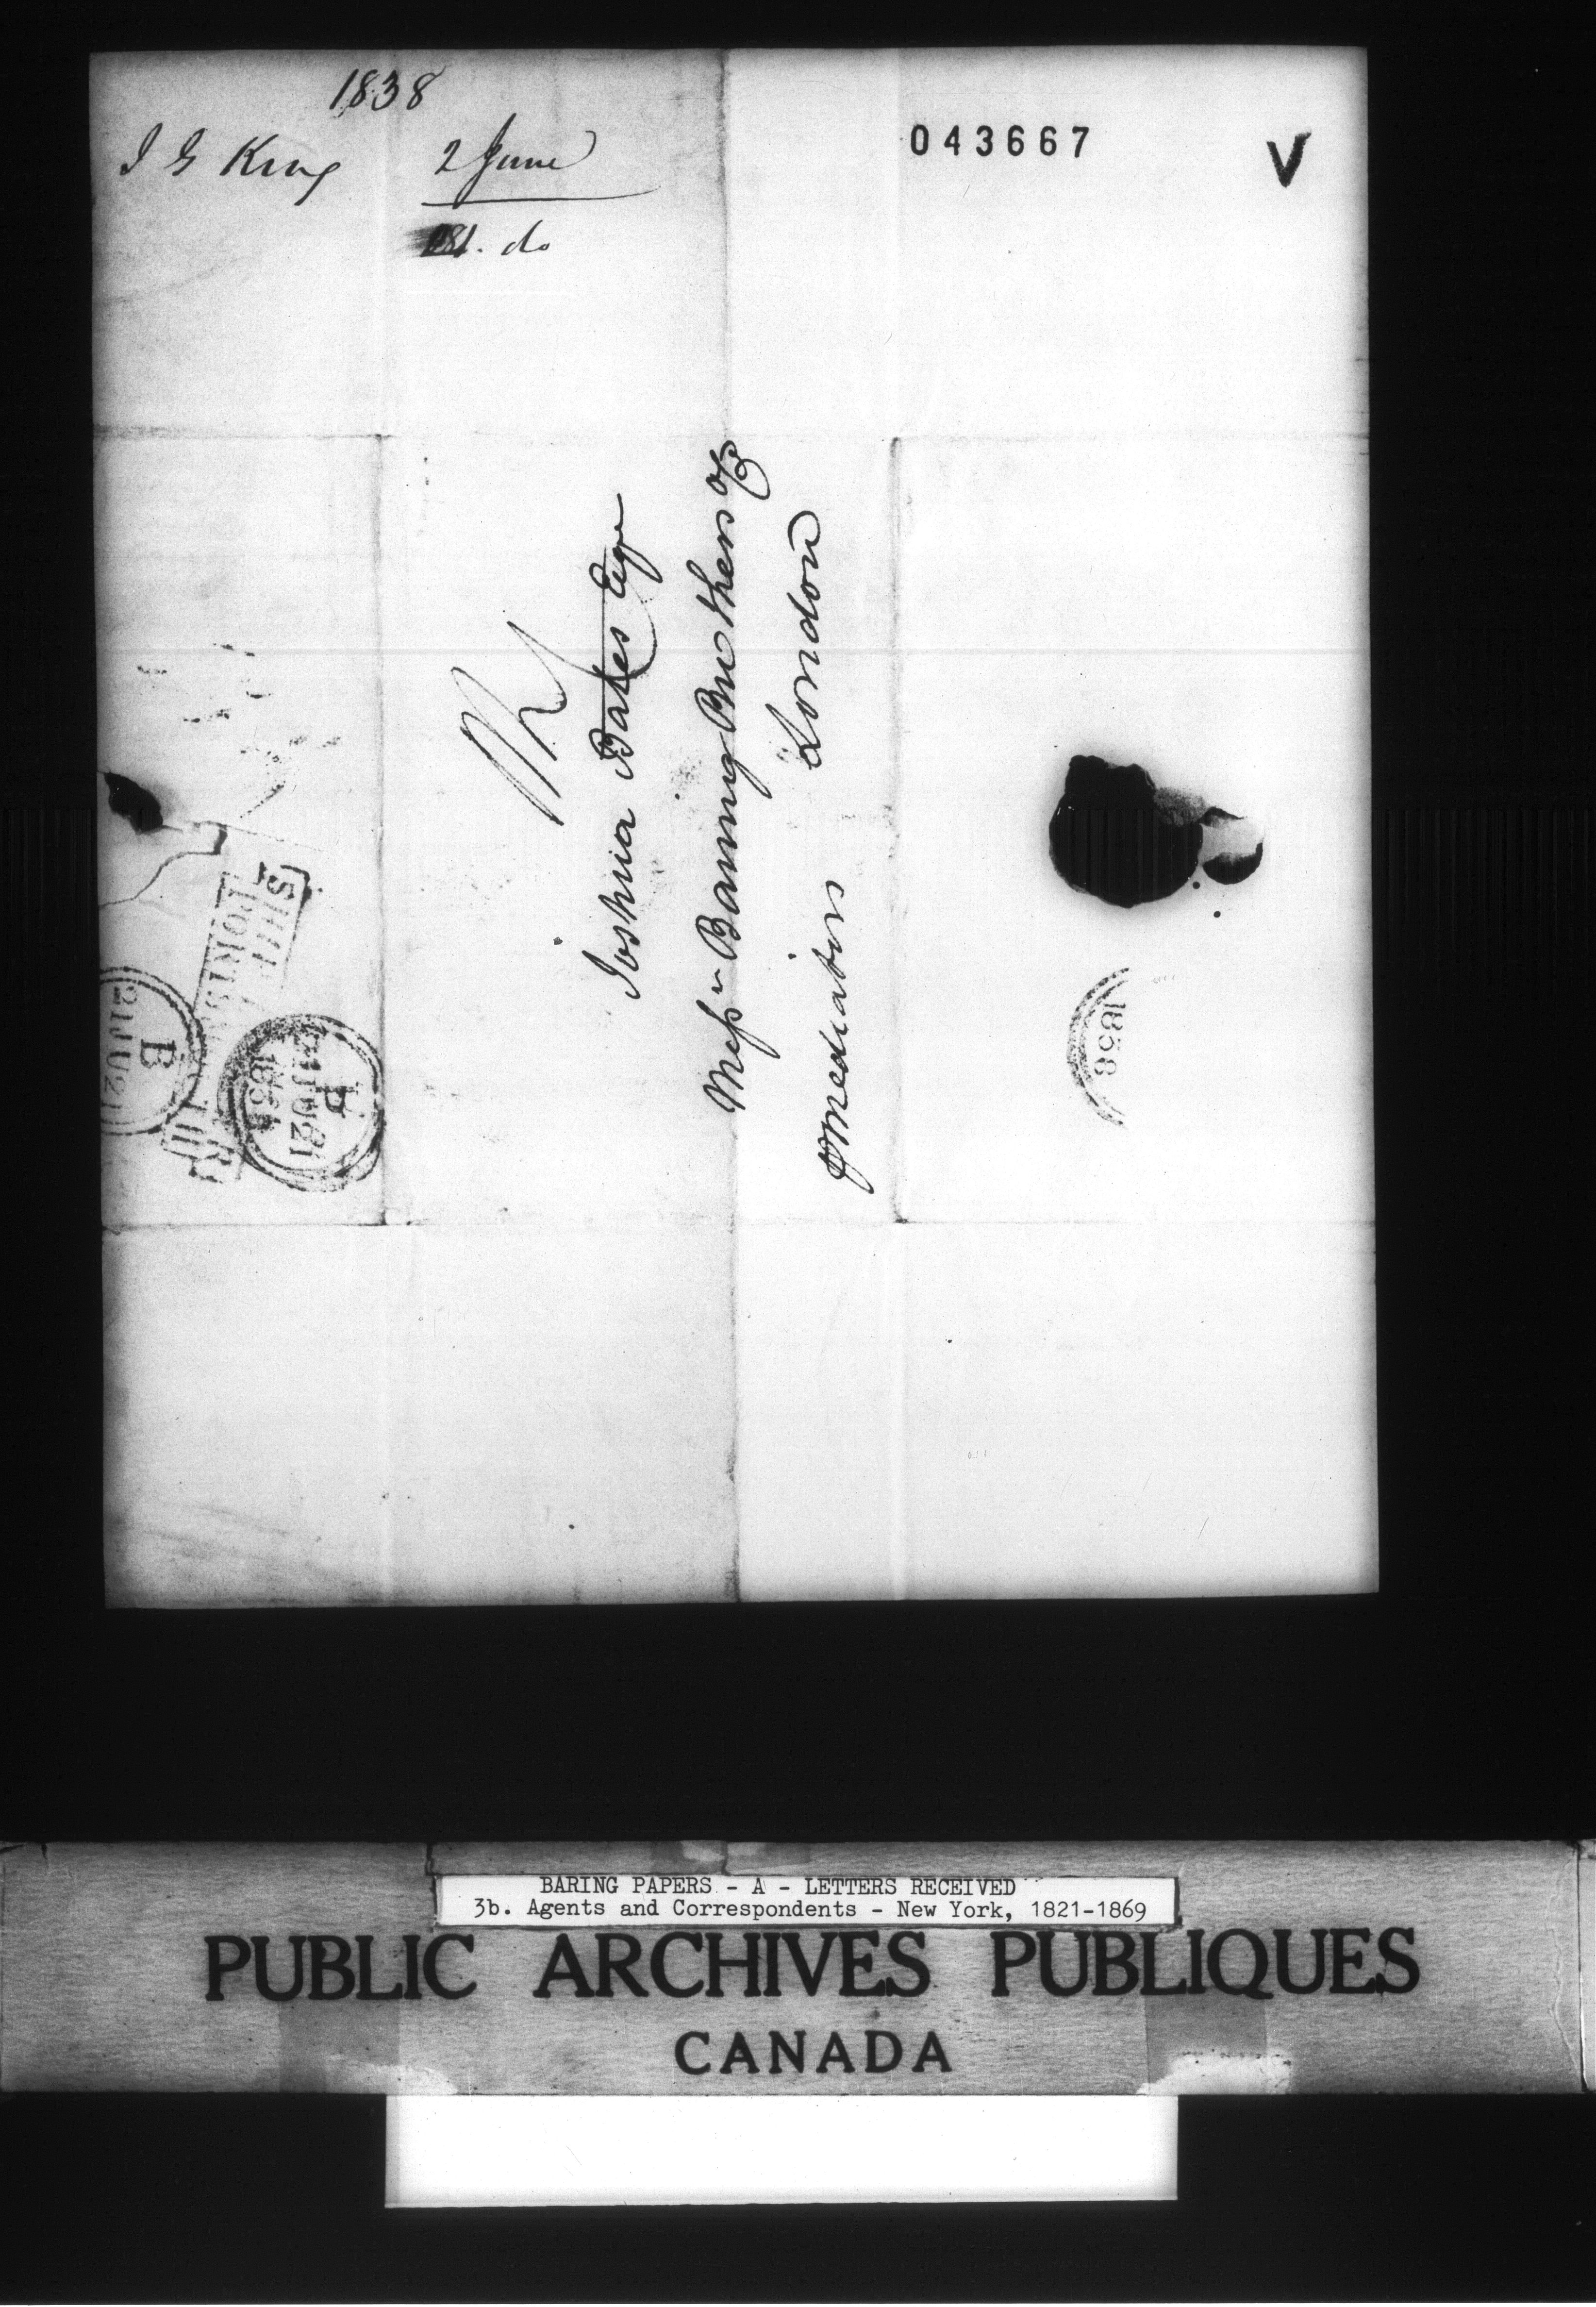 1838
J G King 2 June
21. do
043667
V
Joshua Bates Esqr
Messrs Baring Brothers & Co
London
p Mediator
SHIP
PORTS
B
21 JU 21
B
21 JU 21
1838
1838
BARING PAPERS - A - LETTERS RECEIVED
3b. Agents and Correspondents - New York, 1821-1869
PUBLIC ARCHIVES PUBLIQUES
CANADA